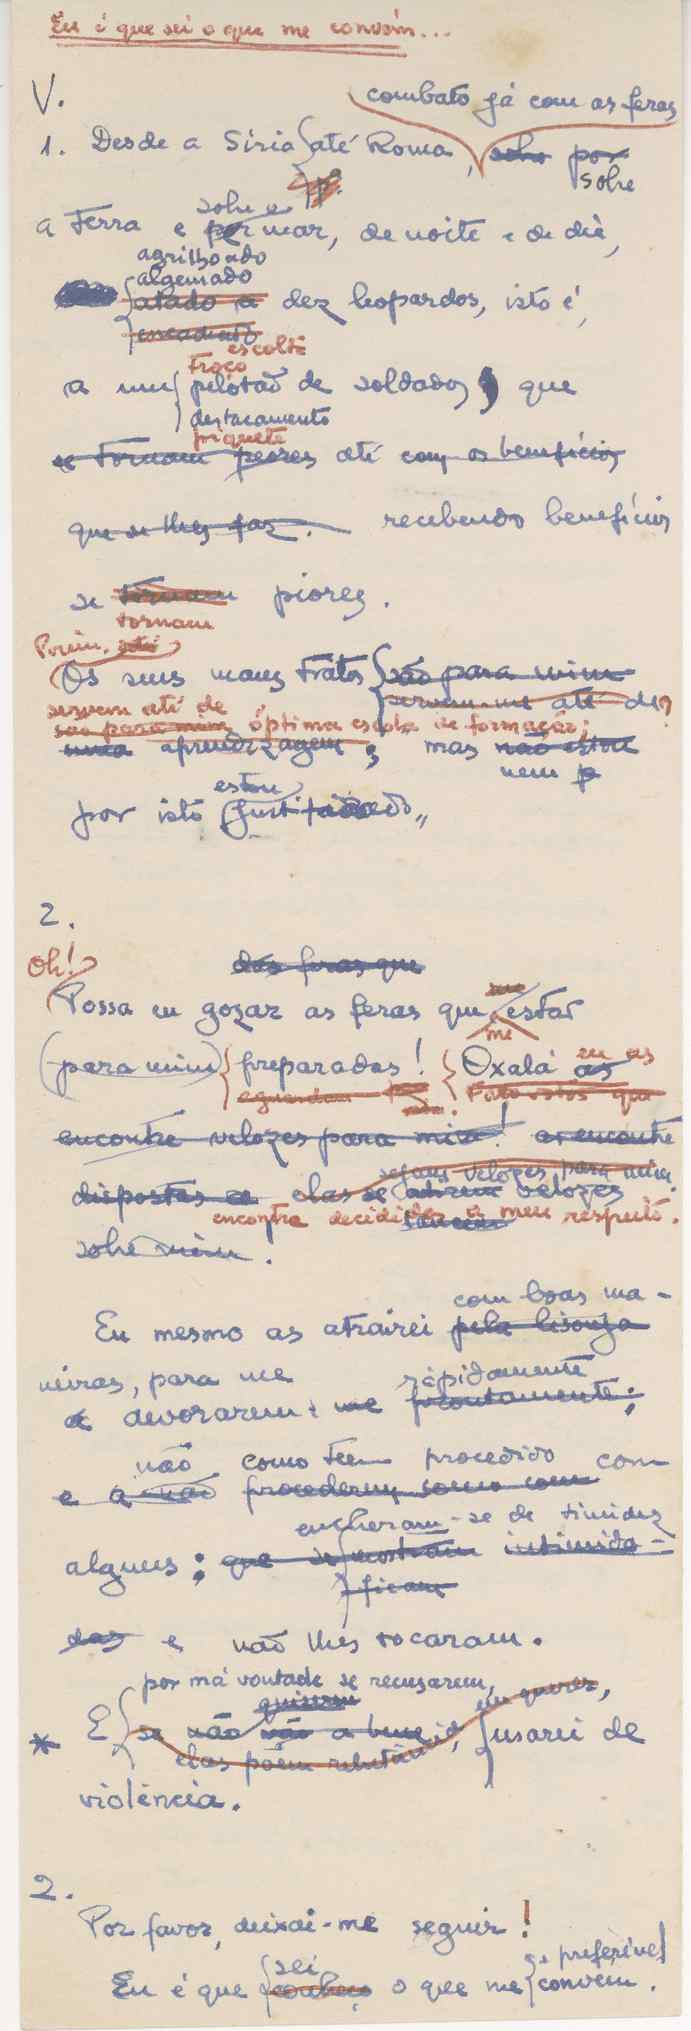 Eu é que sei o que me convém...
V.
combato já com as feras
1. Desde a Síria até Roma, sobre por
sobre
sobre o
a terra e por mar, de noite e de dia,
agrilhoado
algemado
atado a dez leopardos, isto é,
encadeado
escolta
troço
a um pelotão de soldados, que
destacamento
piquete
se tornam peores até com os benefícios
que se lhes faz. recebendo benefícios
se tornam piores.
tornam
Porém,
Os seus maus tratos são para mim
servem-me até de
servem até de
são para mim óptima escola de formação;
uma aprendizagem; mas não estou
nem
estou
por isto justificado,,
2.
Oh!
das feras que
Possa eu gozar as feras que estão
me
(para mim) preparadas! Oxalá as
eu as
aguardam
Faço votos que
encontre velozes para mim! as encontre
sejam velozes para mim
dispostas a elas se atirem velozes
encontre decididas a meu respeito.
lancem
sobre mim.
com boas ma-
Eu mesmo as atrairei pela lisonja
neiras, para me
rapidamente
a devorarem: me prontamente;
não como têm procedido com
e a não procederem como com
encheram-se de timidez
alguns; que se mostram intimida-
ficam
das e não lhes tocaram.
por má vontade se recusarem,
quiserem
em querer,
* E se não vão a bem, usarei de
elas põem relutância
violência.
2.
Por favor, deixai-me seguir!
sei
é preferível
Eu é que conheço o que me convém.